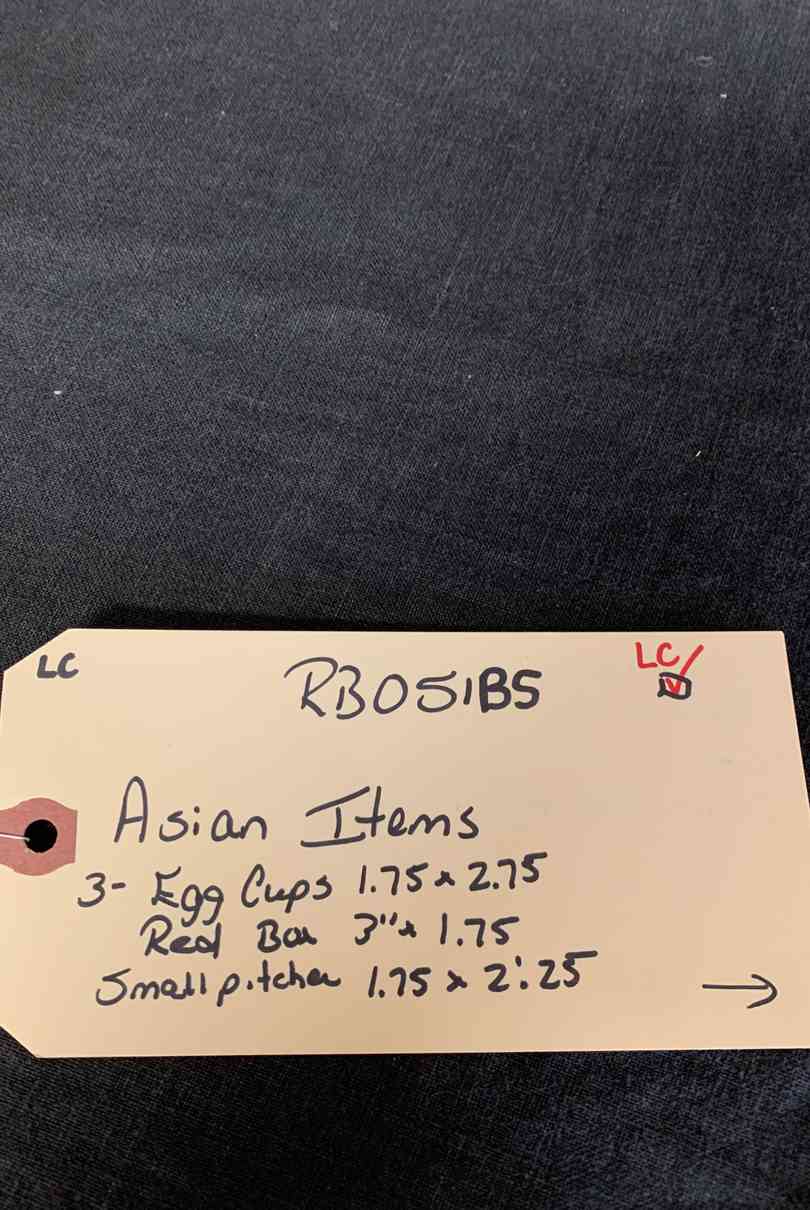 LC
RB051B5
LC
Asian Items
3- Egg Cups 1.75 x 2.75
Red Box 3" x 1.75
Small pitcher 1.75 x 2.25